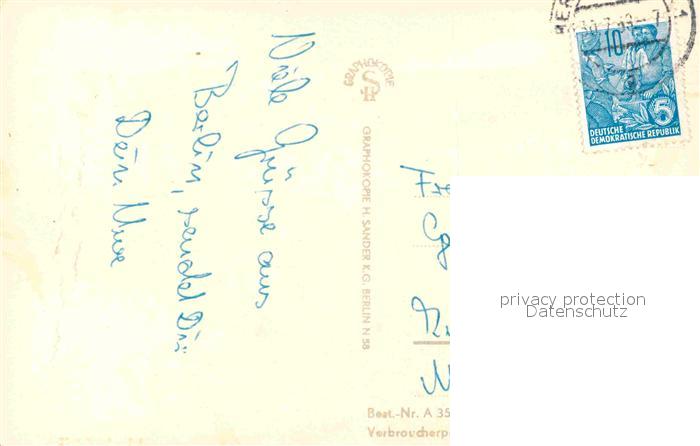 Viele Grüsse aus
Berlin, sendet Dir
Dein Uwe
GRAPHOKOPIE
H S
GRAPHOKOPIE H. SANDER K.G. BERLIN N 58
10
5
DEUTSCHE
DEMOKRATISCHE REPUBLIK
privacy protection
Datenschutz
Best.-Nr. A 35
Verbraucherp